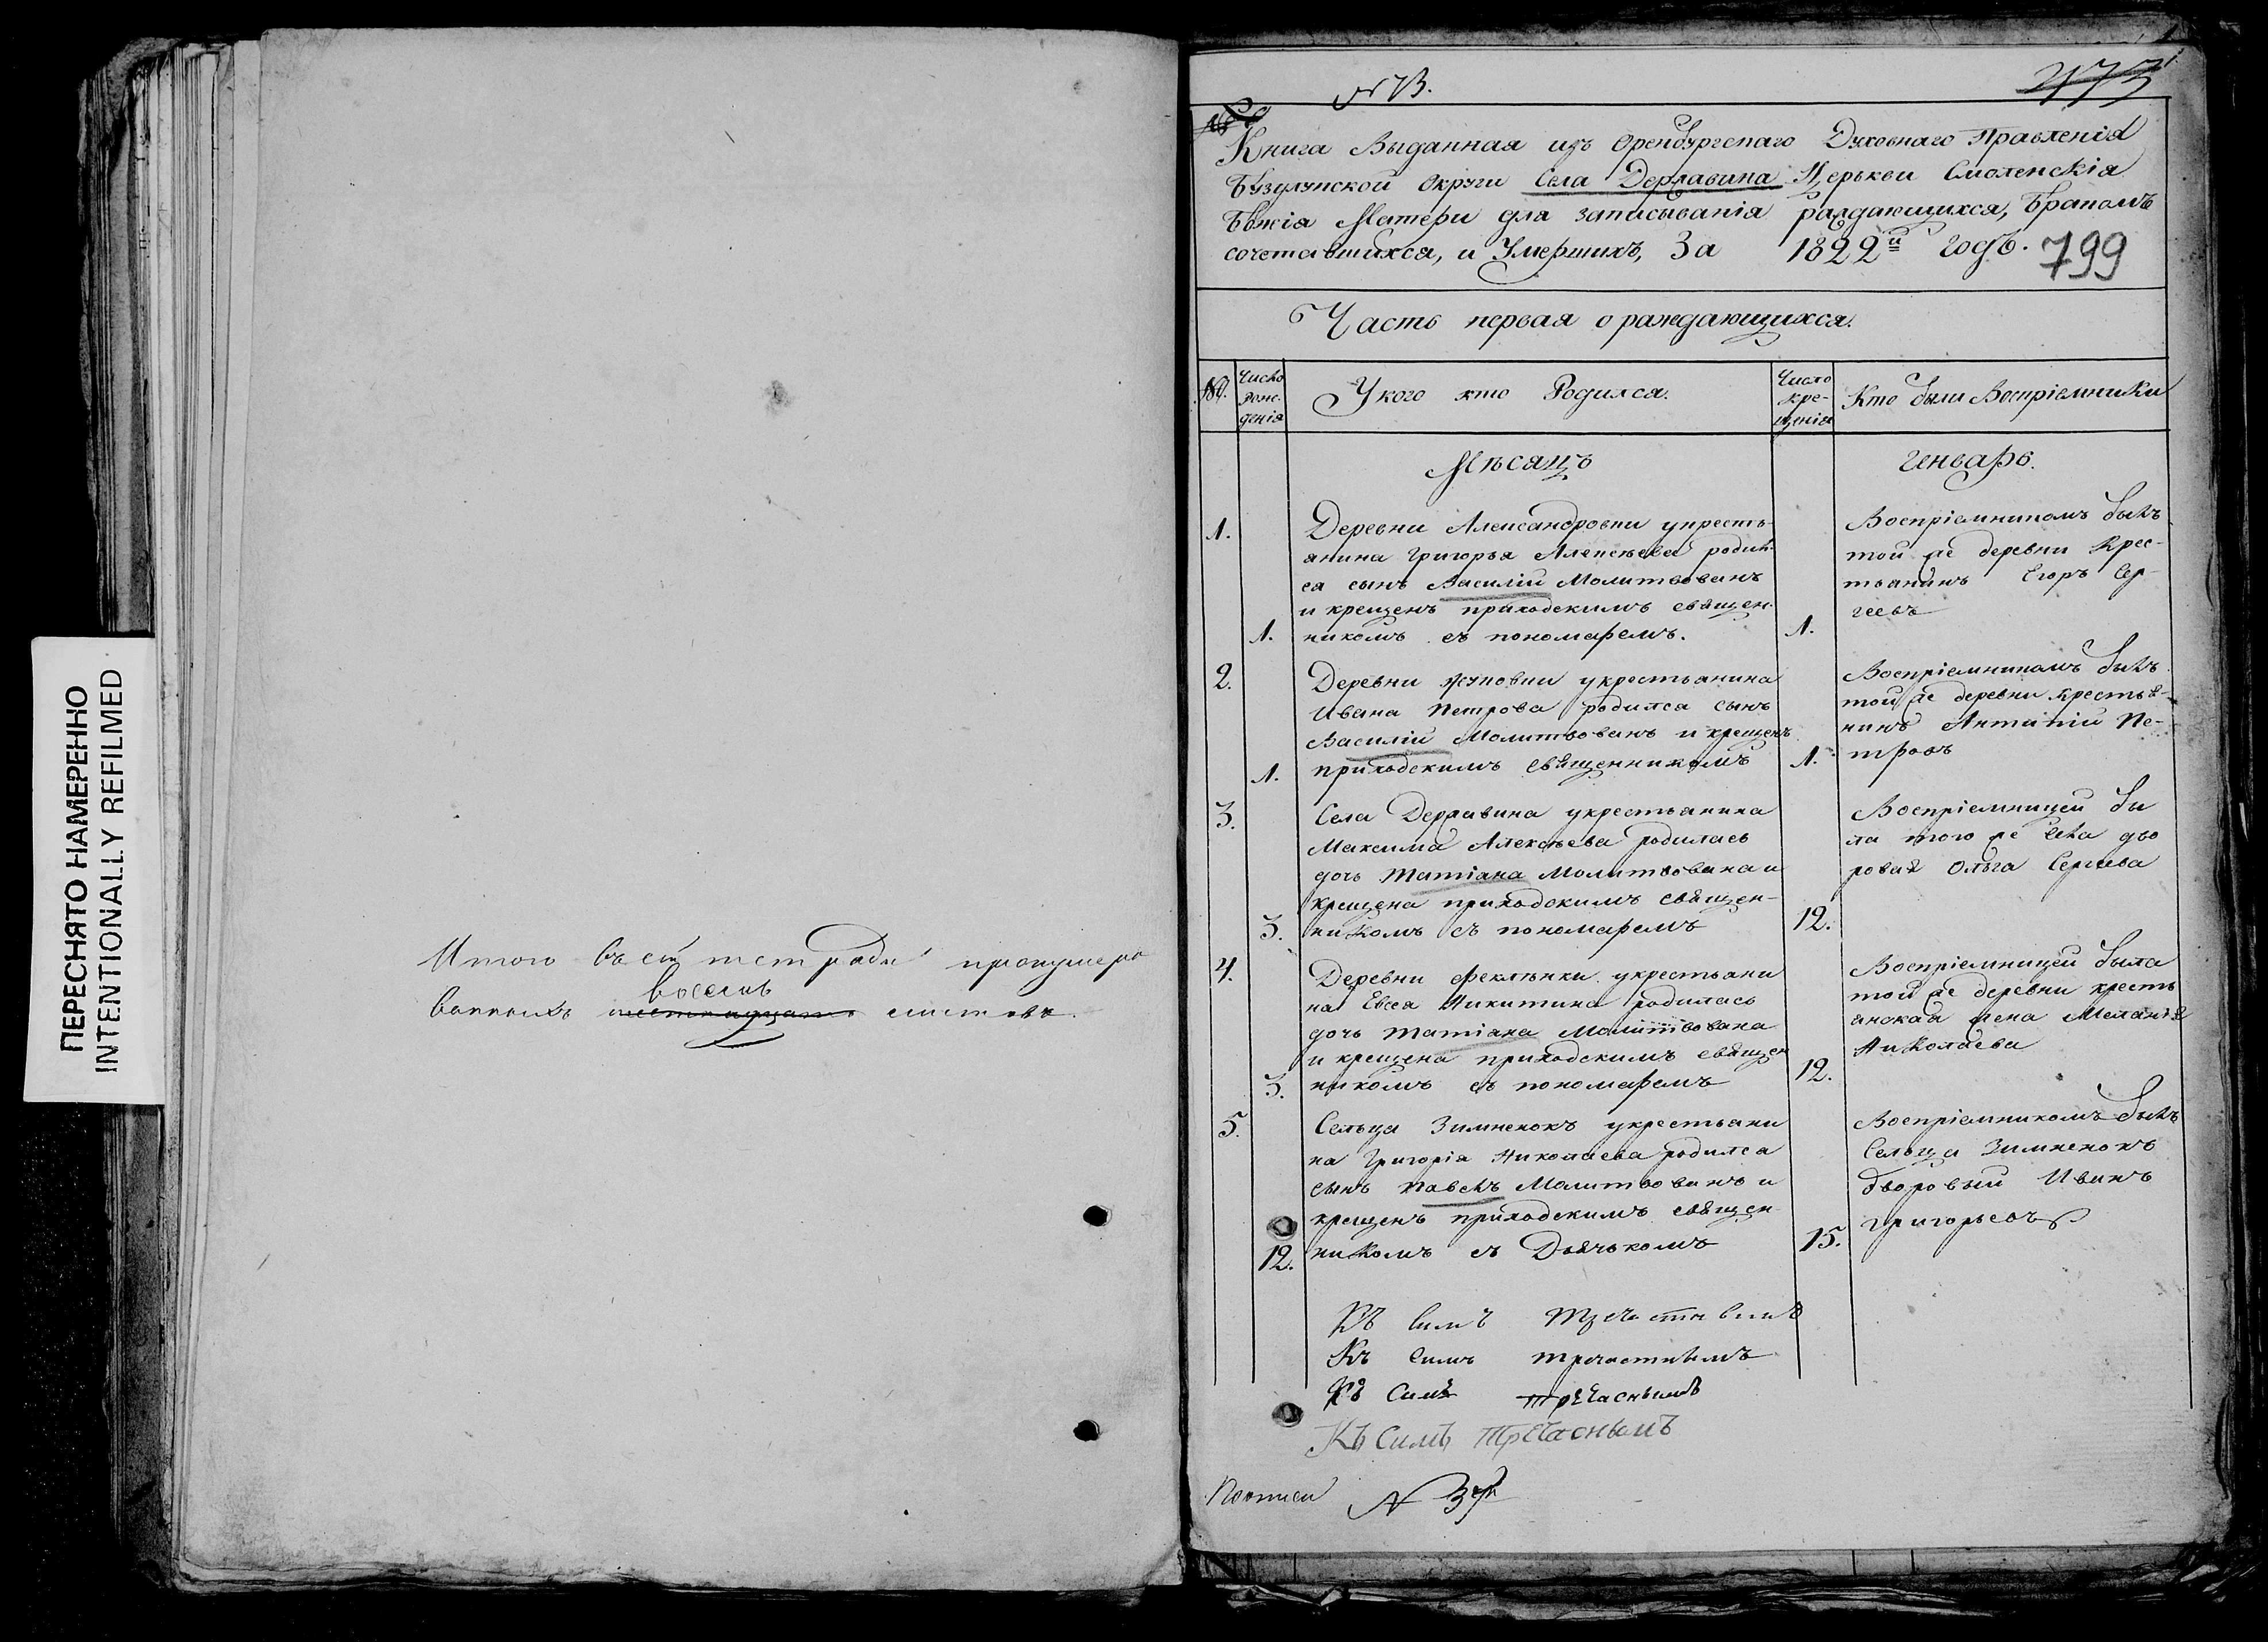 ПЕРЕСНЯТО НАМЕРЕННО
INTENTIONALLY REFILMED
Итого въ сей тетради пронумеро
восемь
ванныхъ шестнадцать листовъ.
473
Книга Выданная изъ Оренбургскаго Духовнаго Правленія
Бузулукской Округи Села Державина Церькви Смоленскія
Божія Матери для записыванія раждающихся, Бракомъ
сочетавшихся, и Умершихъ, За 1822й годъ. 799
Часть первая о раждающихся.
№. Число рож-денія У кого кто Родился. Число кре-щенія Кто были Воспріемники
Мѣсяцъ Генварь.
1. Деревни Александровки у кресть-
янина Григорья Алексѣева родил-
ся сынъ Василій Молитвованъ
и крещенъ приходскимъ священ-
1. никомъ съ пономаремъ. 1.
Воспріемникомъ былъ
той же деревни Крес-
тьянинъ Егоръ Сер-
геевъ
2. Деревни Жуковки у крестьянина
Ивана Петрова родился сынъ
Василій Молитвованъ и крещенъ
1. приходскимъ священникомъ 1.
Воспріемникомъ былъ
той же деревни крестья-
нинъ Пе-
тровъ
3. Села Державина у крестьянина
Максима Алексѣева родилась
дочь Татіана Молитвована и
крещена приходскимъ священ-
3. никомъ съ пономаремъ 12.
Воспріемницей бы
ла того же села дво
ровая Ольга Сергеева
4. Деревни Феклѣнки у крестьяни
на Евсея Никитина родилась
дочь Татіана Молитвована
и крещена приходскимъ священ
3. никомъ съ пономаремъ 12.
Воспріемницей была
той же деревни кресть
янская жена Меланія
Николаева
5. Сельца Зимненокъ у крестьяни
на Григорія Николаева родился
сынъ Павелъ Молитвованъ и
крещенъ приходскимъ священ-
12. никомъ съ Дьячькомъ 15.
Воспріемникомъ былъ
Сельца Зимненокъ
дворовый Иванъ
Григорьевъ
Къ симъ
Къ симъ
Къ Симъ
Къ Симъ